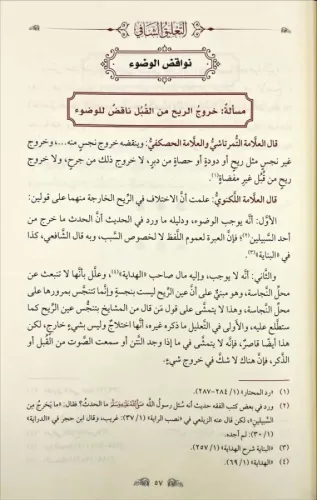 التعليق الشافي
نواقض الوضوء
مسألة: خروجُ الريح من القُبُل ناقضٌ للوضوء
قال العلّامة التُّمرتاشي والعلّامة الحصكفيُّ: وينقضه خروج نجسٍ منه...، وخروج
غير نجس مثل ريح أو دودةٍ أو حصاةٍ من دبرٍ، لا خروج ذلك من جرح، ولا خروج
ريح من قُبُل غير مفضاةٍ(١).
قال العلّامة اللكنويُّ: علمت أنَّ الاختلاف في الريح الخارجة منهما على قولين:
الأوّل: أنَّه يوجب الوضوء، ودليله ما ورد في الحديث أنَّ الحدث ما خرج من
أحد السَّبيلين(٢)؛ فإنَّ العبرة لعموم اللَّفظ لا لخصوص السَّبب، وبه قال الشافعي، كذا
في «البناية»(٣).
والثَّاني: أنَّه لا يوجب، وإليه مال صاحب «الهداية»(٤)، وعلَّل بأنَّها لا تنبعث عن
محلِّ النَّجاسة، وهو مبنيٌّ على أنَّ عين الرِّيح ليست بنجسةٍ وإنَّما تتنجَّس بمرورها على
محلِّ النَّجاسة، وهذا لا يتمشَّى على قول مَن قال من المشايخ بتنجُّس عين الرِّيح كما
ستطَّلع عليه، والأولى في التَّعليل ما ذكره غيره، أنَّها اختلاجٌ وليس بشيءٍ خارجٍ، لكن
هذا أيضًا قاصرٌ، فإنَّه لا يتمشَّى في ما إذا وجد النتن أو سمعت الصوت من القُبُل أو
الذَّكر، فإنَّ هناك لا شكَّ في خروج شيءٍ.
(١) «رد المحتار» (١/ ٢٨٤-٢٨٧).
(٢) ورد في بعض كتب الفقه حديث أنه سُئل رسول الله ﷺ ما الحدث؟ فقال: «ما يَخرجُ مِن
السبيلين»، لكن قال عنه الزيلعي في «نصب الراية» (١/ ٣٧): غريب، وقال ابن حجر في «الدراية»
(١/ ٣٠): لم أجده.
(٣) «البناية شرح الهداية» (١/ ٢٥٧).
(٤) «الهداية» (١/ ٦٩).
٥٧